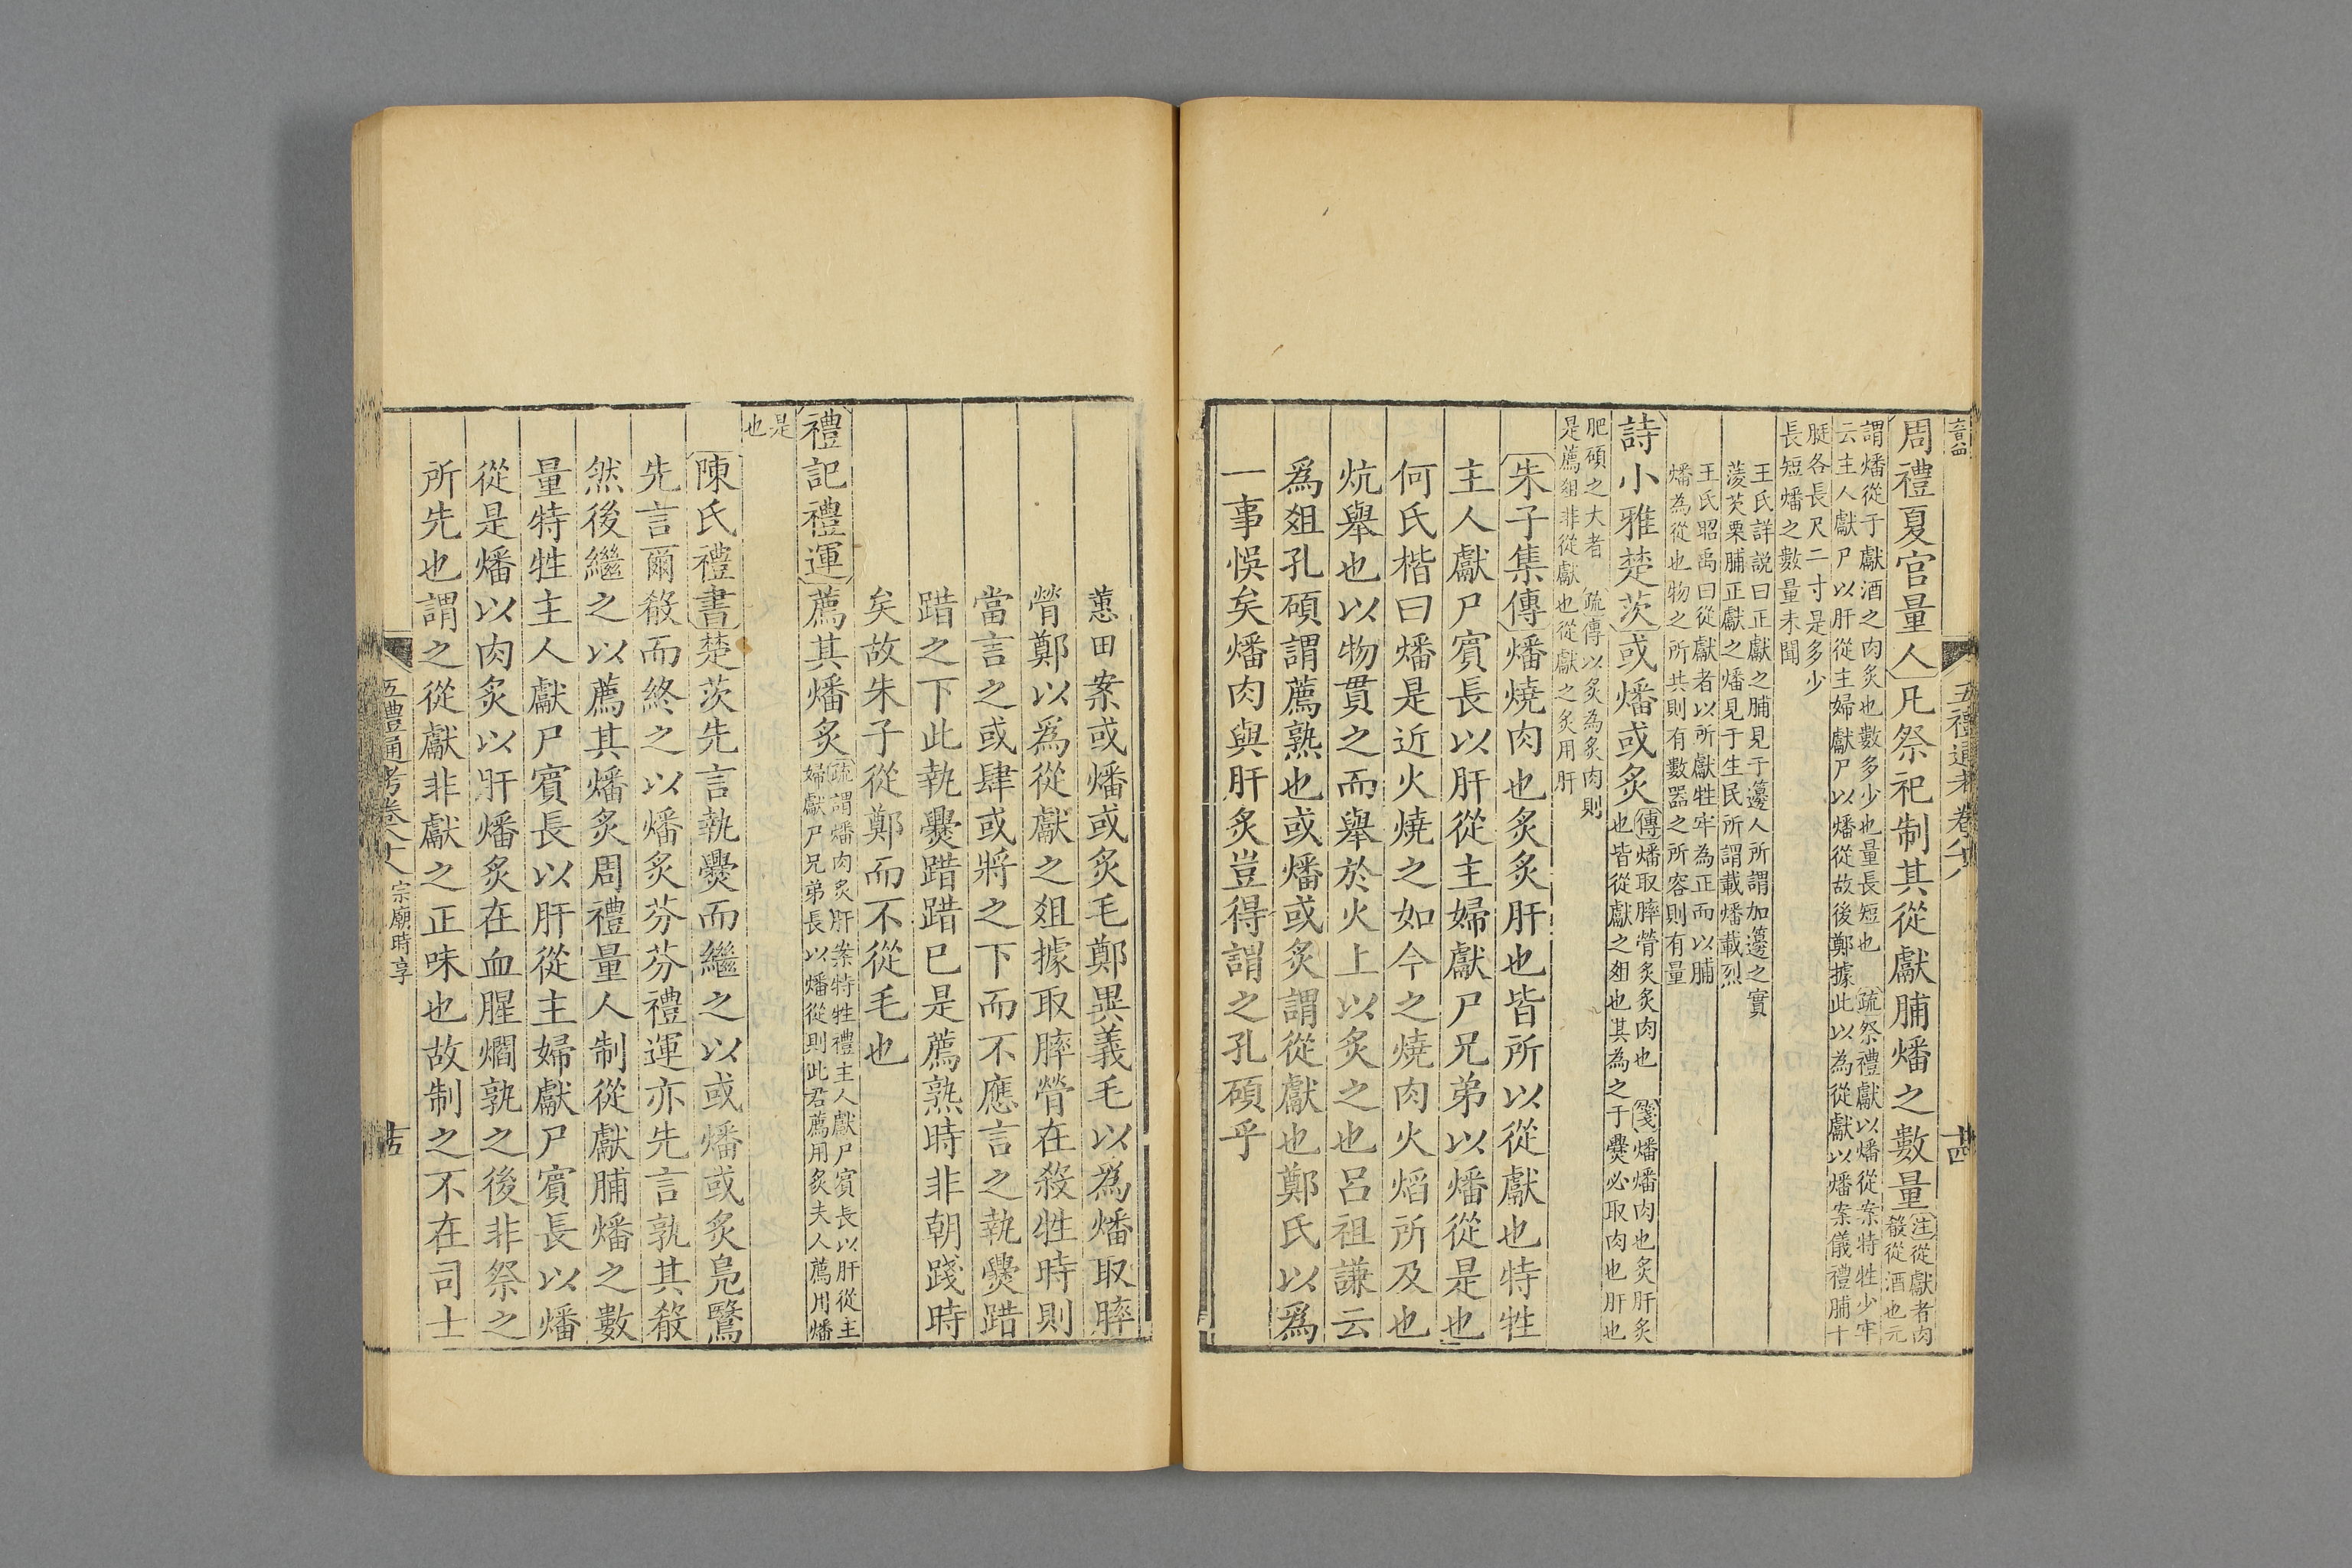 五禮通考卷八
十四
周禮夏官量人凡祭祀制其從獻脯燔之數量注從獻者肉
殽從酒也元
謂燔從于獻酒之肉炙也數多少也量長短也 疏祭禮獻以燔從案特牲少牢
云主人獻尸以肝從主婦獻尸以燔從故後鄭據此以為從獻以燔案儀禮脯十
脡各長尺二寸是多少
長短燔之數量未聞
王氏詳說曰正獻之脯見于籩人所謂加籩之實
蔆芡栗脯正獻之燔見于生民所謂載燔載烈
王氏昭禹曰從獻者以所獻牲牢為正而以脯
燔為從也物之所共則有數器之所容則有量
詩小雅楚茨或燔或炙傳燔取膟膋炙炙肉也 箋燔燔肉也炙肝炙
也皆從獻之俎也其為之于爨必取肉也肝也
肥碩之大者 疏傳以炙為炙肉則
是薦俎非從獻也從獻之炙用肝
朱子集傳燔燒肉也炙炙肝也皆所以從獻也特牲
主人獻尸賓長以肝從主婦獻尸兄弟以燔從是也
何氏楷曰燔是近火燒之如今之燒肉火焰所及也
炕舉也以物貫之而舉於火上以炙之也呂祖謙云
爲俎孔碩謂薦熟也或燔或炙謂從獻也鄭氏以爲
一事悞矣燔肉與肝炙豈得謂之孔碩乎
蕙田案或燔或炙毛鄭異義毛以爲燔取膟
膋鄭以爲從獻之俎據取膟膋在殺牲時則
當言之或肆或將之下而不應言之執爨踖
踖之下此執爨踖踖已是薦熟時非朝踐時
矣故朱子從鄭而不從毛也
禮記禮運薦其燔炙疏謂燔肉炙肝案特牲禮主人獻尸賓長以肝從主
婦獻尸兄弟長以燔從則此君薦用炙夫人薦用燔
是
也
陳氏禮書楚茨先言執爨而繼之以或燔或炙鳧鷖
先言爾殽而終之以燔炙芬芬禮運亦先言孰其殽
然後繼之以薦其燔炙周禮量人制從獻脯燔之數
量特牲主人獻尸賓長以肝從主婦獻尸賓長以燔
從是燔以肉炙以肝燔炙在血腥爓孰之後非祭之
所先也謂之從獻非獻之正味也故制之不在司士
五禮通考卷八十八 宗廟時享